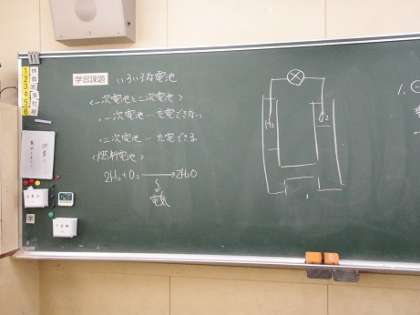 学習課題 いろいろな電池
<一次電池と二次電池>
・一次電池…充電できない
・二次電池…充電できる
<燃料電池>
2H₂+O₂→2H₂O
電気
H₂
O₂
1
2
3
4
5
6